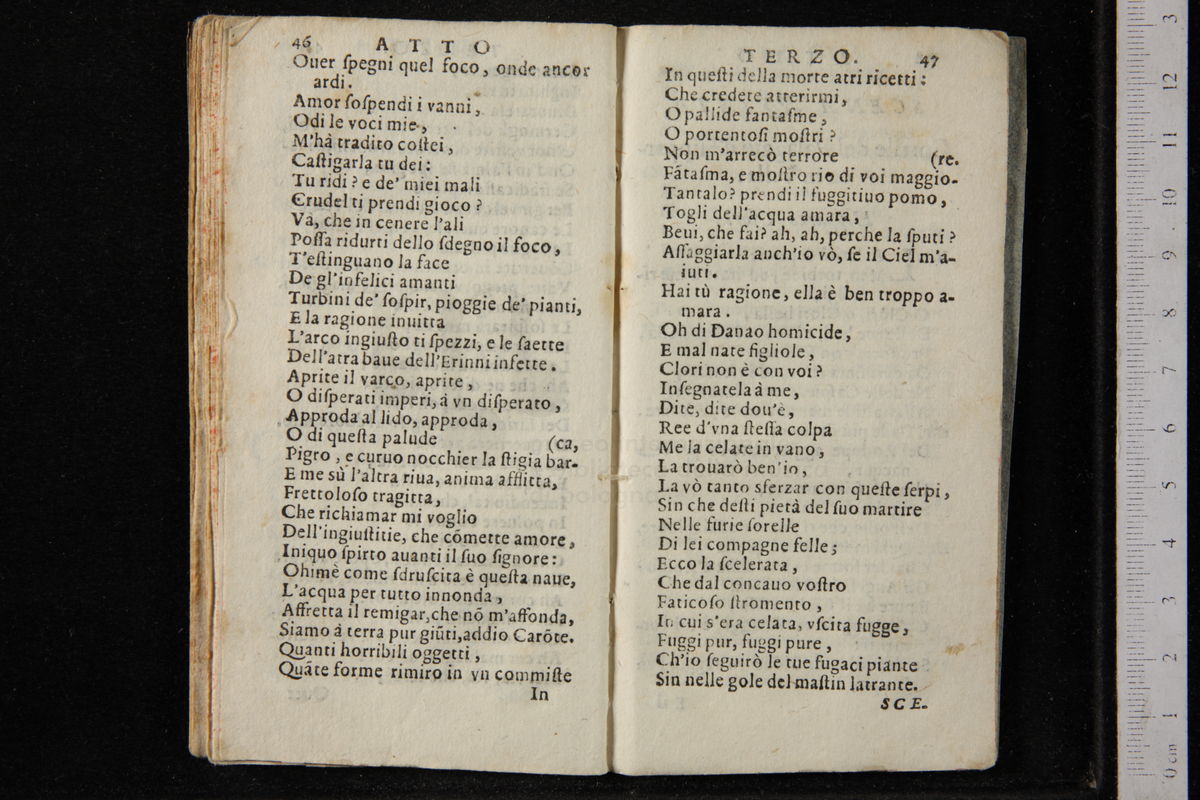 46 ATTO
Ouer ſpegni quel foco, onde ancor
ardi.
Amor ſoſpendi i vanni,
Odi le voci mie,
M'hà tradito coſtei,
Caſtigarla tu dei:
Tu ridi? e de' miei mali
Crudel ti prendi gioco?
Và, che in cenere l'ali
Poſſa ridurti dello ſdegno il foco,
T'eſtinguano la face
De gl'infelici amanti
Turbini de' ſoſpir, pioggie de' pianti,
E la ragione inuitta
L'arco ingiuſto ti ſpezzi, e le ſaette
Dell'atra baue dell'Erinni infette.
Aprite il varco, aprite,
O diſperati imperi, à vn diſperato,
Approda al lido, approda,
O di queſta palude (ca,
Pigro, e curuo nocchier la ſtigia bar-
E me sù l'altra riua, anima afflitta,
Frettoloſo tragitta,
Che richiamar mi voglio
Dell'ingiuſtitie, che cõmette amore,
Iniquo ſpirto auanti il ſuo ſignore:
Ohimè come ſdruſcita è queſta naue,
L'acqua per tutto innonda,
Affretta il remigar, che nõ m'affonda,
Siamo à terra pur giũti, addio Carõte.
Quanti horribili oggetti,
Quãte forme rimiro in vn commiſte
In
TERZO. 47
In queſti della morte atri ricetti:
Che credete atterirmi,
O pallide fantaſme,
O portentoſi moſtri?
Non m'arrecò terrore (re.
Fãtaſma, e moſtro rio di voi maggio-
Tantalo? prendi il fuggitiuo pomo,
Togli dell'acqua amara,
Beui, che fai? ah, ah, perche la ſputi?
Aſſaggiarla anch'io vò, ſe il Ciel m'a-
iuti.
Hai tù ragione, ella è ben troppo a-
mara.
Oh di Danao homicide,
E mal nate figliole,
Clori non è con voi?
Inſegnatela à me,
Dite, dite dou'è,
Ree d'vna ſteſſa colpa
Me la celate in vano,
La trouarò ben'io,
La vò tanto sferzar con queſte ſerpi,
Sin che deſti pietà del ſuo martire
Nelle furie ſorelle
Di lei compagne felle;
Ecco la ſcelerata,
Che dal concauo voſtro
Faticoſo ſtromento,
In cui s'era celata, vſcita fugge,
Fuggi pur, fuggi pure,
Ch'io ſeguirò le tue fugaci piante
Sin nelle gole del maſtin latrante.
SCE.